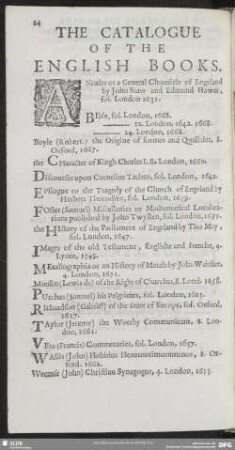 84
THE CATALOGUE
OF THE
ENGLISH BOOKS.
ANnales or a General Chronicle of England
by John Stow and Edmund Hawes,
fol. London 1631.
Bible, fol. London, 1668.
12. London, 1642. 1668.
24. London, 1668.
Boyle (Robert.) the Origine of formes and Qualities, 8.
Oxford, 1667.
the CHaracter of Kingh Charles I. 8. London, 1660.
DIscourses upon Cornelius Tacitus, fol. London, 1642.
EPilogue to the Tragedy of the Church of England by
Herbert Thorndike, fol. London, 1659.
FOster (Samuel) Miscellanies or Mathematical Lucubra-
tions published by John Twysden, fol. London, 1659.
the HIstory of the Parliament of England by Tho May,
fol. London, 1647.
IMages of the old Testament, Englishe and frenche, 4.
Lyon, 1549.
MEtallographia or an History of Metals by John Webster,
4. London, 1671.
Moulin (Lewis du) of the Right of Churches, 8. Lond. 1658.
PUrchas (Samuel) his Pelgrimes, fol. London, 1625.
RIchardson (Gabriel) of the State of Europe. fol. Oxford,
1627.
TAylor (Jeremy) the Worthy Communicant, 8. Lon-
don, 1661.
VEre (Francis) Commentaries, fol. London, 1657.
WAllis (John) Hobbius Heauton-timorumenos, 8. Ox-
ford. 1662.
Weemse (John) Christian Synagogue, 4. London, 1623.
SLUB